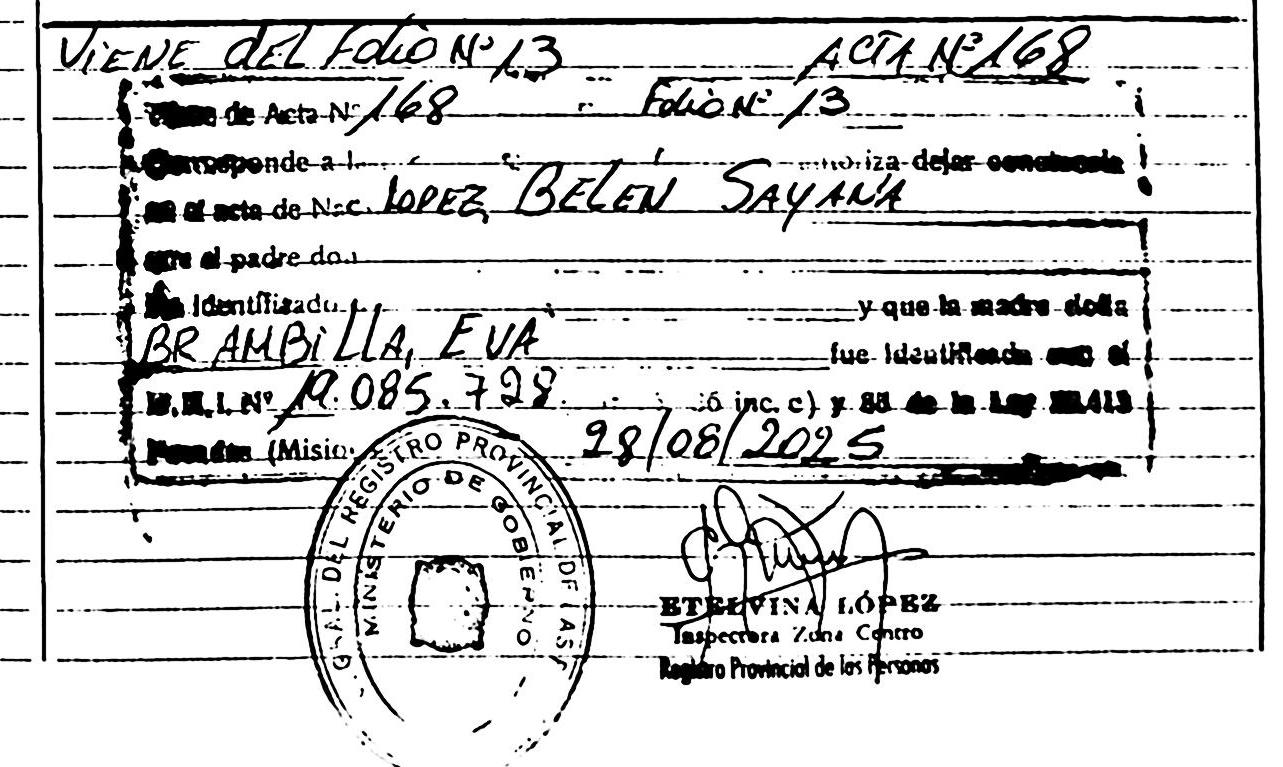 VIENE DEL Folio Nº 13 ACTA Nº 168
de Acta Nº 168 Folio Nº 13
Corresponde a l autoriza dejar constancia
en el acta de Nac. LOPEZ, BELÉN SAYANA
que el padre don
identificado y que la madre doña
BRAMBILLA, EVA fue identificada con el
D.N.I. Nº 19.085.728. 6 inc. c) y 85 de la Ley 26.413
Posadas (Misio 28/08/2025
GRAL. DEL REGISTRO PROVINCIAL DE LAS
MINISTERIO DE GOBIERNO
ETELVINA LÓPEZ
Inspectora Zona Centro
Registro Provincial de las Personas